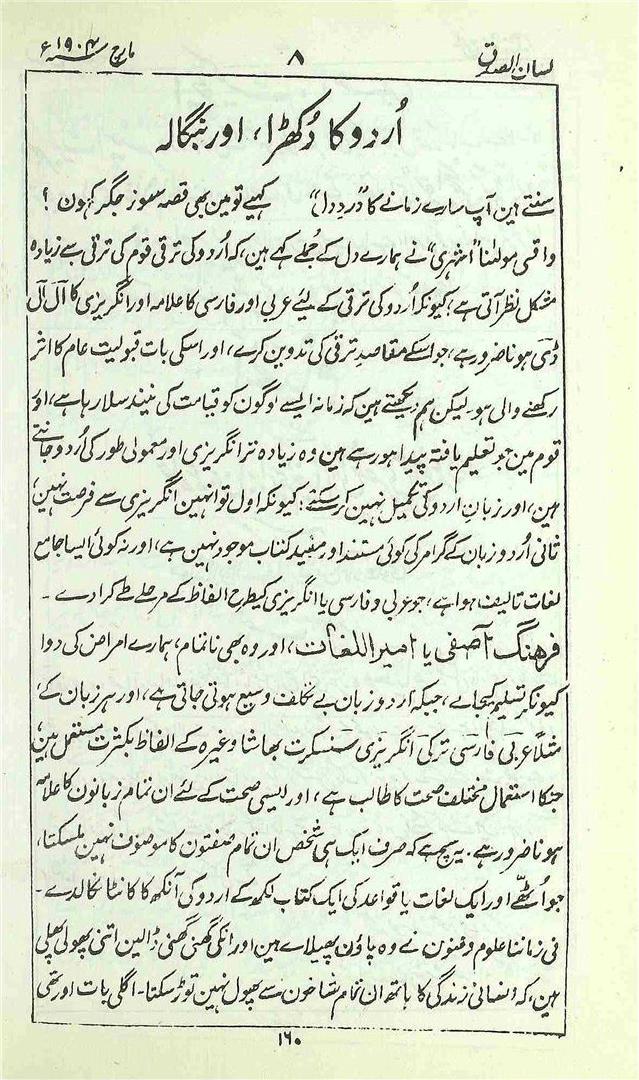 لسان الصدق ۸ مارچ سنہ ۱۹۰۴ ء
اُردو کا دُکھڑا، اور بنگالہ
سنتے ہین آپ سارے زمانے کا ”دردِ دل“ کہیے تو مین بھی قصہ سوزِ جگر کہون ؟
واقعی مولٰنا ”اشہری“ نے ہمارے دل کے جُملے کہے ہین، کہ اُردو کی ترقی قوم کی ترقی سے زیادہ
مشکل نظر آتی ہے؛ کیونکہ اُردو کی ترقی کے لیئے عربی اور فارسی کا علامہ اور انگریزی کا آل آل
ڈی ہونا ضرور ہے، جو اسکے مقاصدِ ترقی کی تدوین کرے، اور اسکی بات قبولیت عام کا اثر
رکھنے والی ہو۔ لیکن ہم دیکھتے ہین کہ زمانہ ایسے لوگون کو قیامت کی نیند سلا رہا ہے، اور
قوم مین جو تعلیم یافتہ پیدا ہو رہے ہین وہ زیادہ تر انگریزی اور معمولی طور کی اُردو جانتے
ہین، اور زبانِ اردو کی تکمیل نہین کر سکتے؛ کیونکہ اول تو انہین انگریزی سے فرصت نہین؛
ثانی اُردو زبان کے گرامر کی کوئی مستند اور مفید کتاب موجود نہین ہے، اور نہ کوئی ایسا جامع
لغات تالیف ہوا ہے، جو عربی و فارسی یا انگریزی کیطرح الفاظ کے مرحلے طے کرا دے ۔
فرہنگ آصفی یا امیر اللغات، اور وہ بھی ناتمام، ہمارے امراض کی دوا
کیونکر تسلیم کیجاے، جبکہ اردو زبان بے تکلف وسیع ہوتی جاتی ہے، اور ہر زبان کے،
مثلاً عربی فارسی ترکی انگریزی سنسکرت بھاشا وغیرہ کے الفاظ بکثرت مستعمل ہین؛
جنکا استعمال مختلف صحت کا طالب ہے، اور ایسی صحت کے لئے ان تمام زبانون کا علامہ
ہونا ضرور ہے۔ یہ سچ ہے کہ صرف ایک ہی شخص ان تمام صفتون کا موصوف نہین ملسکتا،
جو اُٹھے اور ایک لغات یا قواعد کی ایک کتاب لکھ کے اردو کی آنکھ کا کانٹا نکالدے ۔
فی زماننا علوم و فنون نے وہ پاؤن پھیلاے ہین اور انکی گھنی گھنی ڈالین اتنی پھولی پھلی
ہین، کہ انسانی زندگی کا ہاتھ ان تمام شاخون سے پھول نہین توڑ سکتا۔ اگلی بات اور تھی
۱۶۰